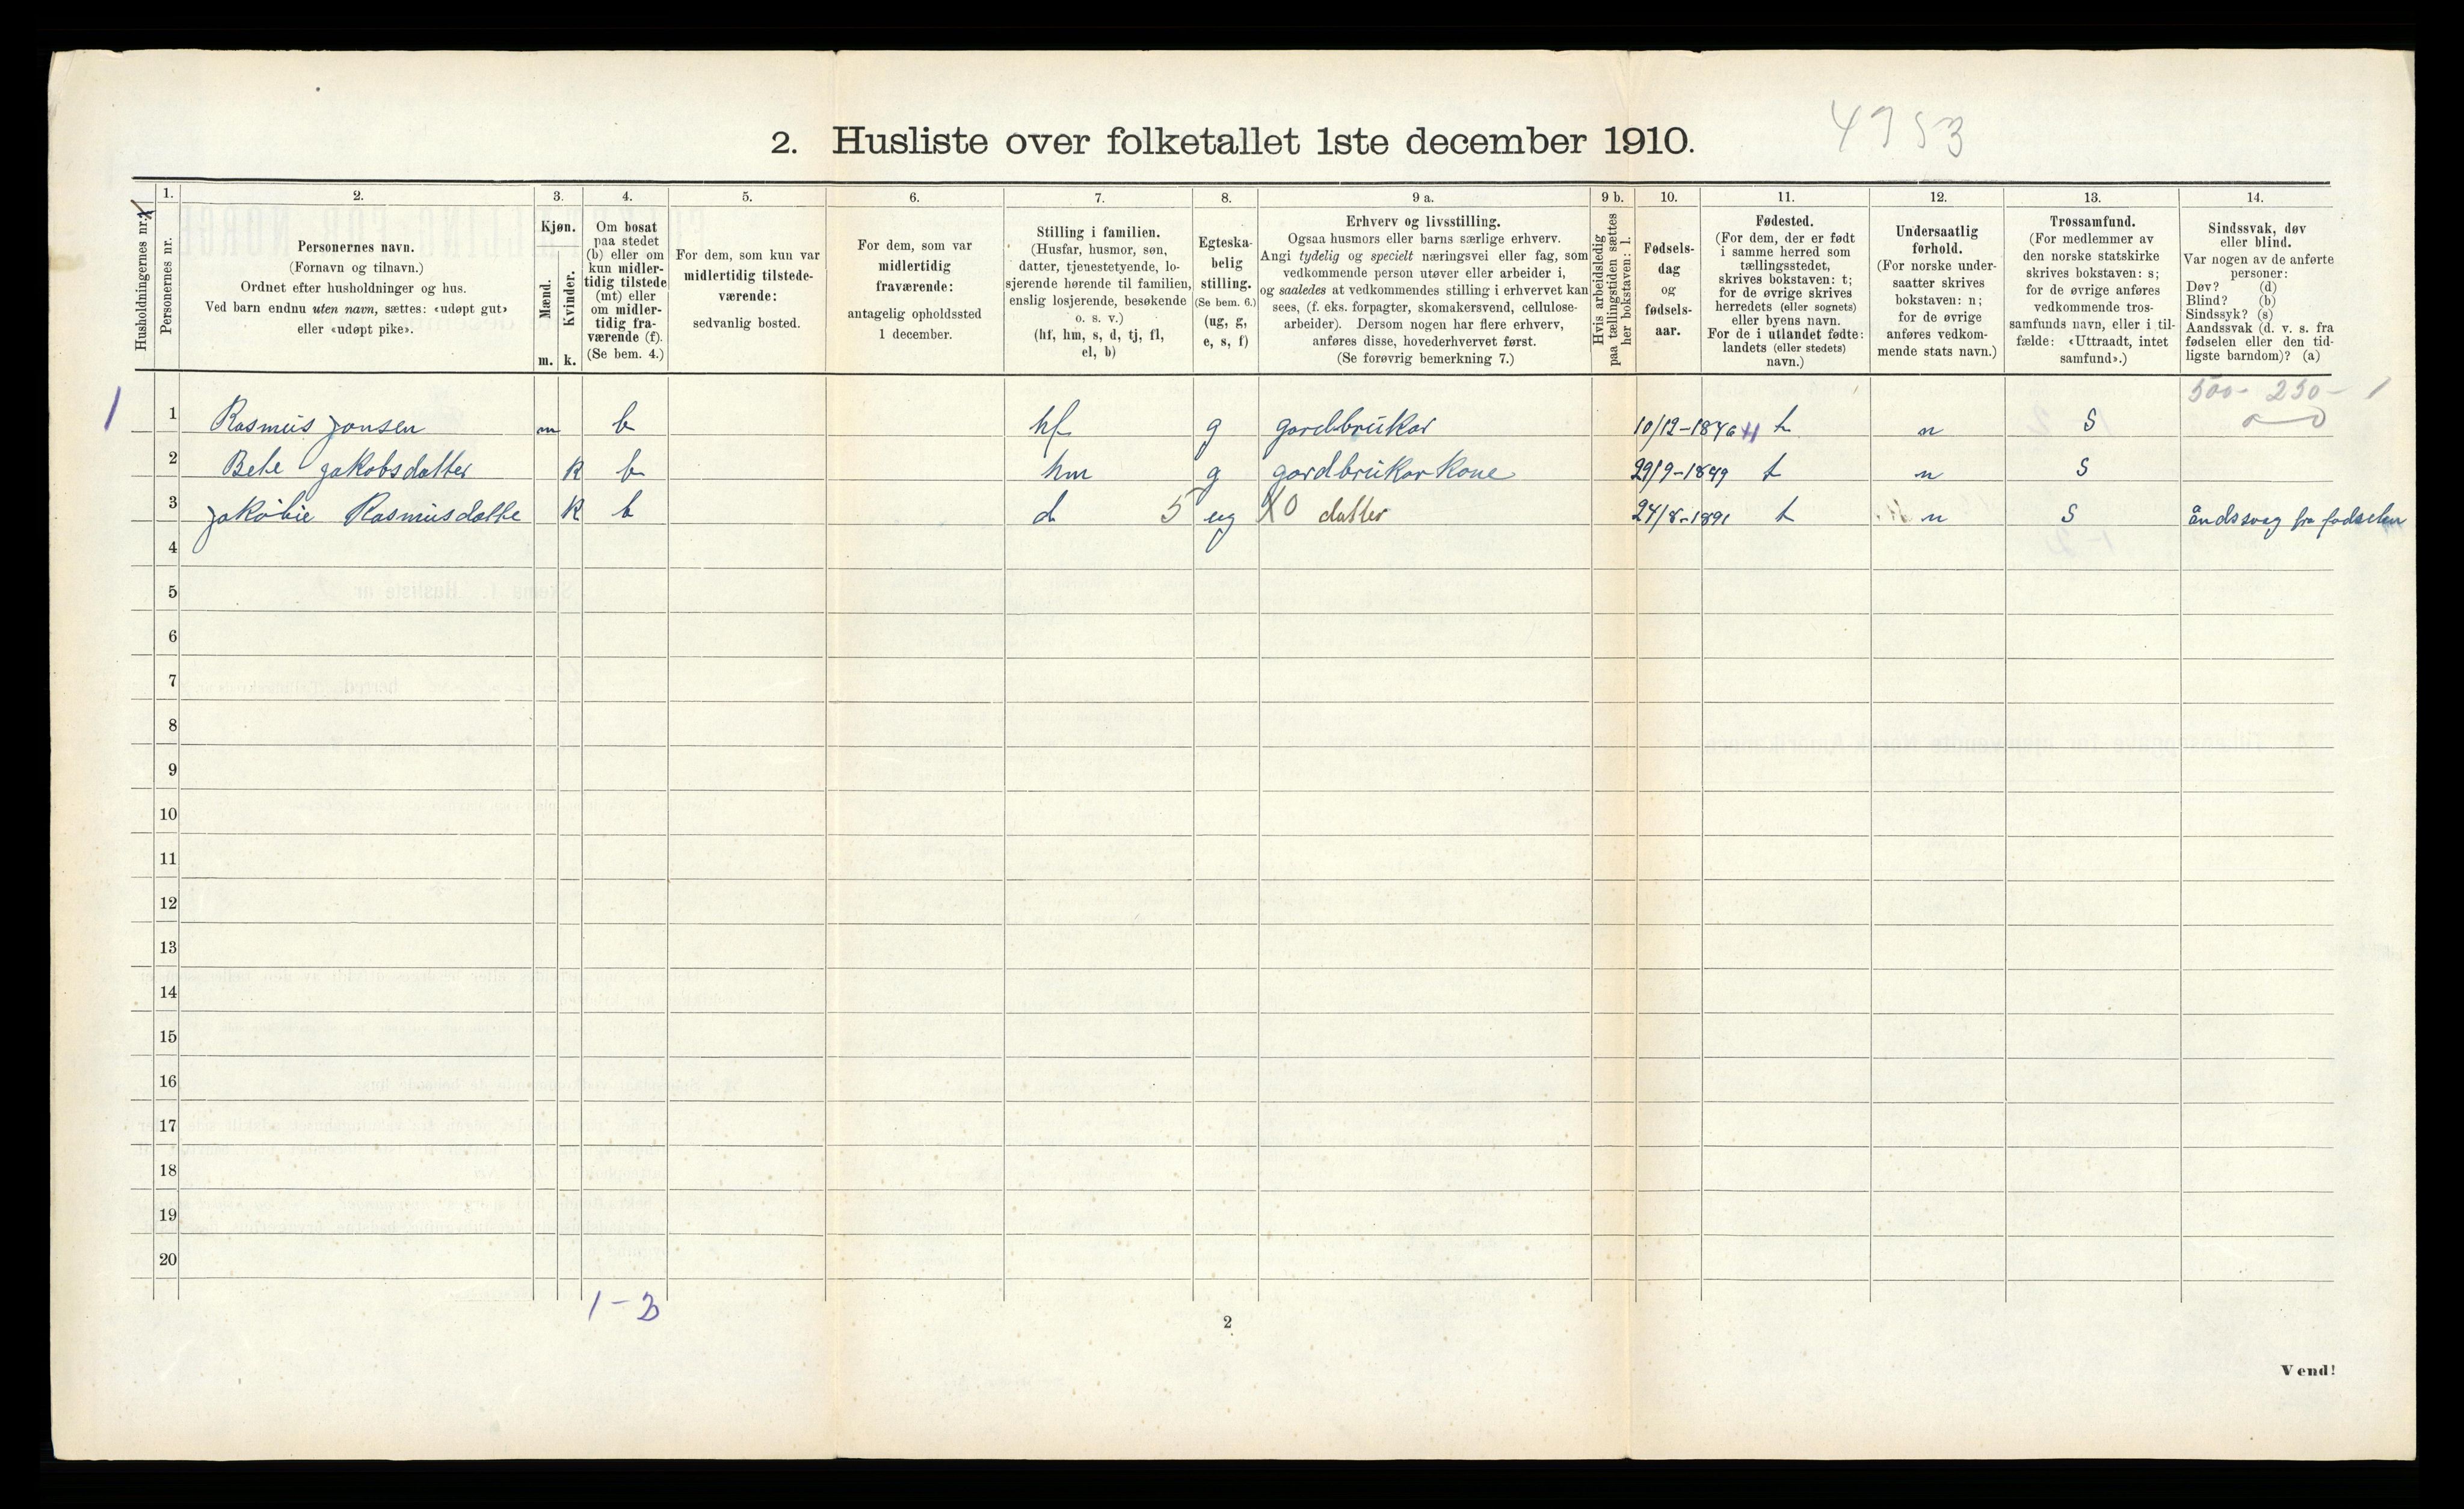 2. Husliste over folketallet 1ste december 1910.
4953
Husholdningernes nr.
1.
Personernes nr.
2.
Personernes navn.
(Fornavn og tilnavn.)
Ordnet efter husholdninger og hus.
Ved barn endnu uten navn, sættes: «udøpt gut»
eller «udøpt pike».
3.
Kjøn.
Mænd.
Kvinder.
m. k.
4.
Om bosat
paa stedet
(b) eller om
kun midler-
tidig tilstede
(mt) eller
om midler-
tidig fra-
værende (f).
(Se bem. 4.)
5.
For dem, som kun var
midlertidig tilstede-
værende:
sedvanlig bosted.
6.
For dem, som var
midlertidig
fraværende:
antagelig opholdssted
1 december.
7.
Stilling i familien.
(Husfar, husmor, søn,
datter, tjenestetyende, lo-
sjerende hørende til familien,
enslig losjerende, besøkende
o. s. v.)
(hf, hm, s, d, tj, fl,
el, b)
8.
Egteska-
belig
stilling.
(Se bem. 6.)
(ug, g,
e, s, f)
9 a.
Erhverv og livsstilling.
Ogsaa husmors eller barns særlige erhverv.
Angi tydelig og specielt næringsvei eller fag, som
vedkommende person utøver eller arbeider i,
og saaledes at vedkommendes stilling i erhvervet kan
sees, (f. eks. forpagter, skomakersvend, cellulose-
arbeider). Dersom nogen har flere erhverv,
anføres disse, hovederhvervet først.
(Se forøvrig bemerkning 7.)
9 b.
Hvis arbeidsledig
paa tællingstiden sættes
her bokstaven: l.
10.
Fødsels-
dag
og
fødsels-
aar.
11.
Fødested.
(For dem, der er født
i samme herred som
tællingsstedet,
skrives bokstaven: t;
for de øvrige skrives
herredets (eller sognets)
eller byens navn.
For de i utlandet fødte:
landets (eller stedets)
navn.)
12.
Undersaatlig
forhold.
(For norske under-
saatter skrives
bokstaven: n;
for de øvrige
anføres vedkom-
mende stats navn.)
13.
Trossamfund.
(For medlemmer av
den norske statskirke
skrives bokstaven: s;
for de øvrige anføres
vedkommende tros-
samfunds navn, eller i til-
fælde: «Uttraadt, intet
samfund».)
14.
Sindssvak, døv
eller blind.
Var nogen av de anførte
personer:
Døv? (d)
Blind? (b)
Sindssyk? (s)
Aandssvak (d. v. s. fra
fødselen eller den tid-
ligste barndom)? (a)
500- 250- 1
0-0
1 1 Rasmus Jonsen m b hf g gardbrukar 10/12-1846 t n S
2 Bete Jakobsdatter K b hm g gardbrukar kone 29/9-1849 t n S
3 Jakobie Rasmusdatte K b d 5 ug X0 datter 24/8-1891 t n S åndssvag fra fødselen
4
5
6
7
8
9
10
11
12
13
14
15
16
17
18
19
20
1-2
2
Vend!